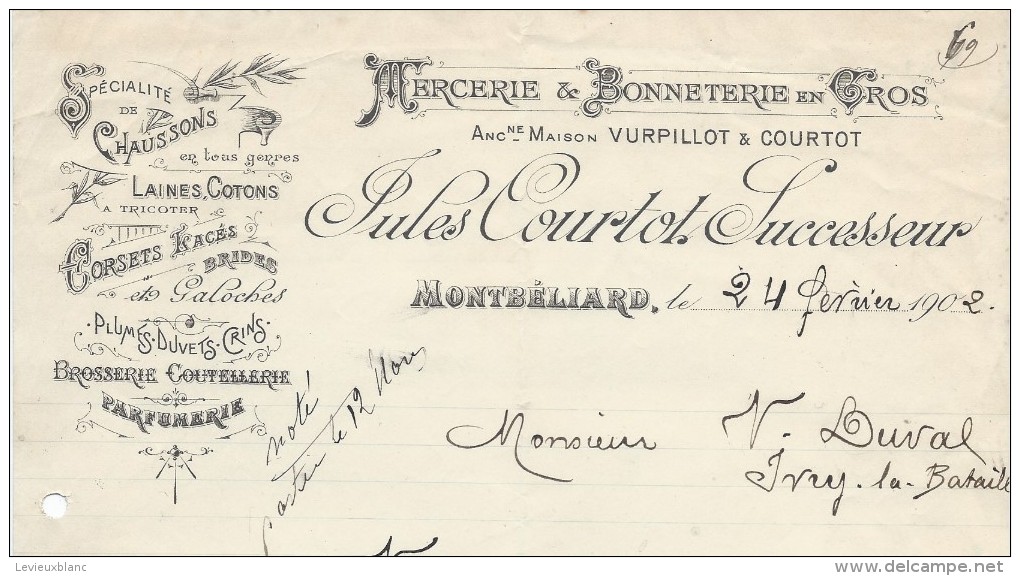 69
SPÉCIALITÉ
DE
CHAUSSONS
en tous genres
LAINES, COTONS
A TRICOTER
CORSETS LACÉS
BRIDES
et Galoches
PLUMES · DUVETS · CRINS
BROSSERIE COUTELLERIE
PARFUMERIE
MERCERIE & BONNETERIE EN GROS
ANCNE MAISON VURPILLOT & COURTOT
Jules Courtot, Successeur
MONTBÉLIARD, le 24 fèvrier 1902.
noté
partir le 12 Mars
Monsieur V. Duval
Ivry-la-Bataille
Levieuxblanc
delcampe.net